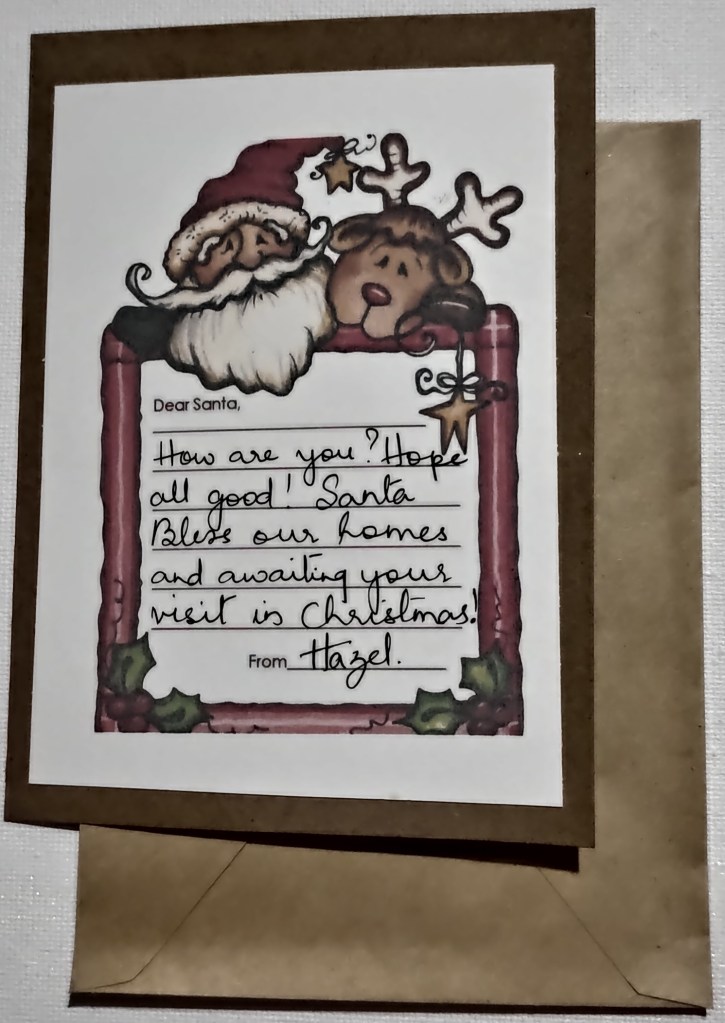 Dear Santa,
How are you? Hope
all good! Santa
Bless our homes
and awaiting your
visit in Christmas!
From Hazel.